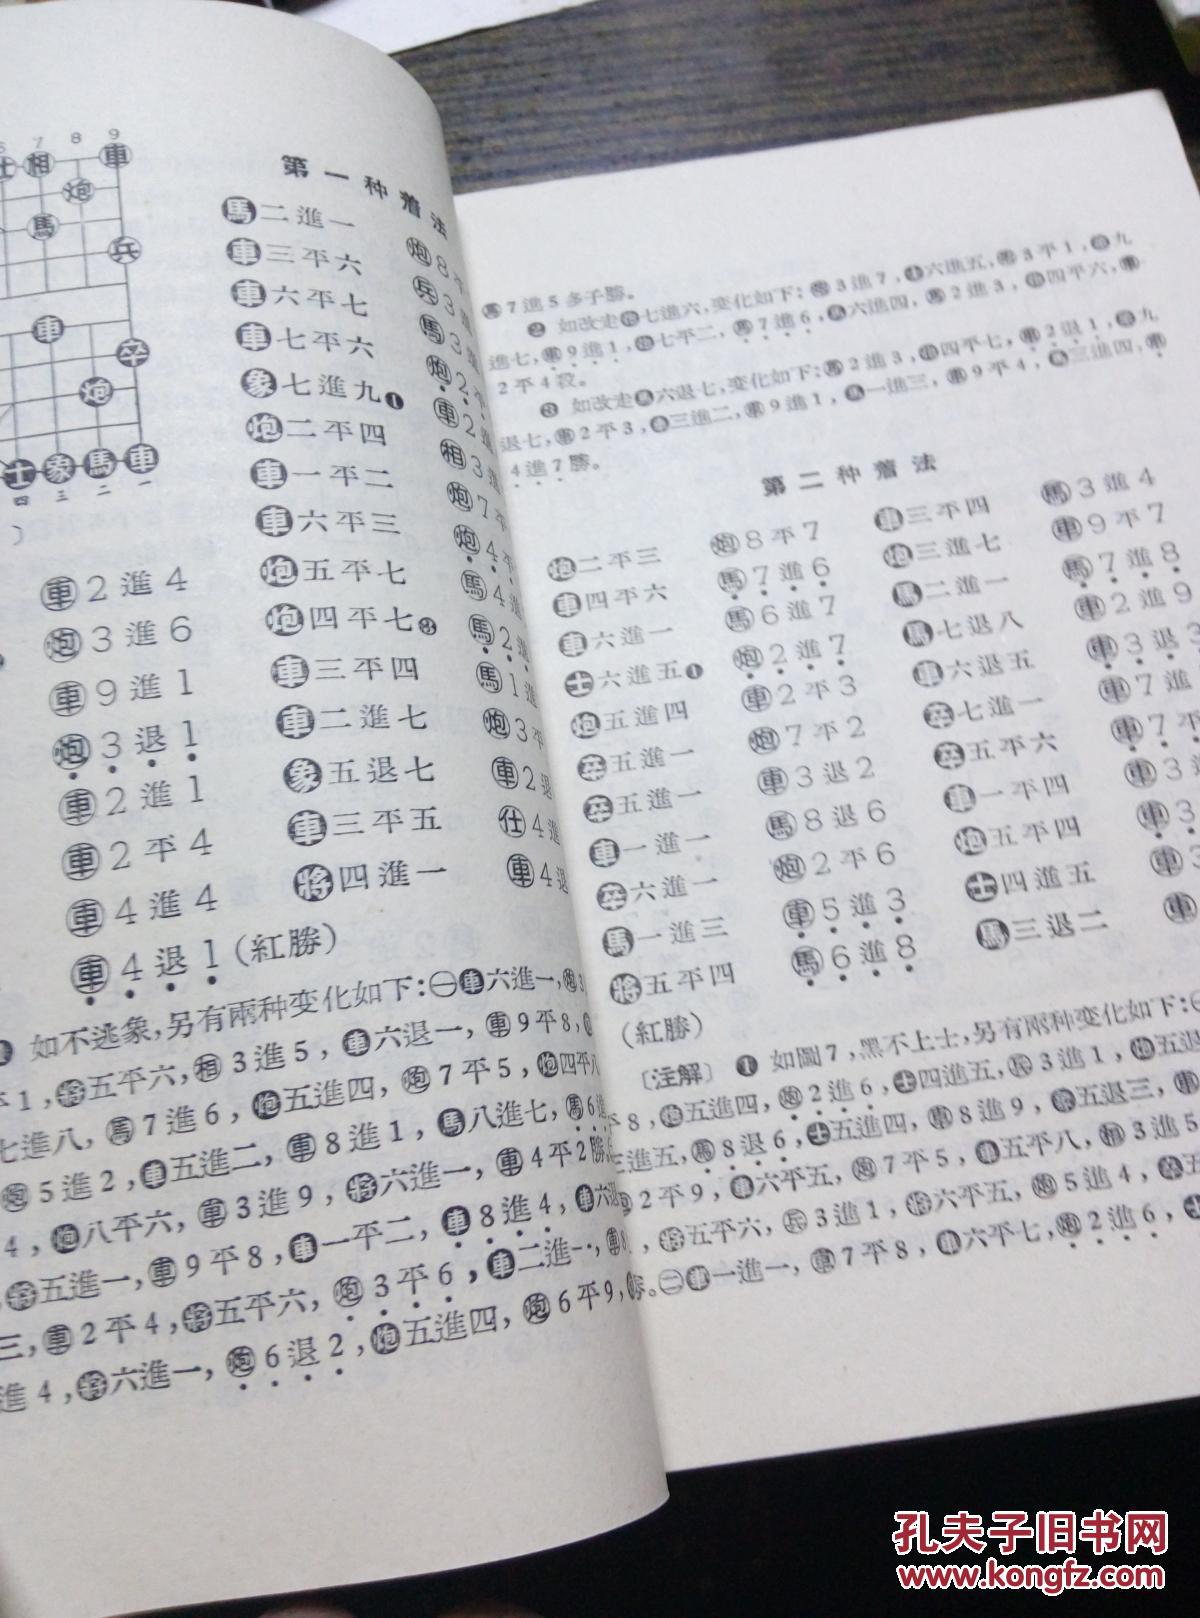 6 7 8 9
仕 相 車
炮
馬
兵
車
卒
炮
士 象 馬 車
四 三 二 一
車2進4
炮3進6
車9進1
炮3退1
車2進1
車2平4
車4進4
車4退1(紅勝)
第一种着法
馬二進一
車三平六
車六平七
車七平六
象七進九❶
炮二平四
車一平二
車六平三
炮五平七
炮四平七❸
車三平四
車二進七
象五退七
車三平五
將四進一
炮8平
兵3進
馬3進
炮2平
車2進
相3進
炮7平
炮4平
馬4進
馬2進
馬1進
炮3平
車2退
仕4進
車4退
如不逃象,另有兩种变化如下:㊀車六進一,炮3
平1,將五平六,相3進5,車六退一,車9平8,
七進八,馬7進6,炮五進四,炮7平5,炮四平八
炮5進2,車五進二,車8進1,馬八進七,馬6進
4,炮八平六,車3進9,將六進一,車4平2勝
將五進一,車9平8,車一平二,車8進4,車六退
三,車2平4,將五平六,炮3平6,車二進一,車8
進4,將六進一,炮6退2,炮五進四,炮6平9,
馬7進5多子勝。
❷ 如改走炮七進六,变化如下:炮3進7,士六進五,炮3平1,象九
進七,車9進1,炮七平二,馬7進6,馬六進四,馬2進3,炮四平六,車
2平4殺。
❸ 如改走馬六退七,变化如下:馬2進3,炮四平七,車2退1,象九
退七,車2平3,象三進二,車9進1,馬一進三,車9平4,馬三進四,車
4進7勝。
第二种着法
炮二平三 炮8平7
車四平六 馬7進6
車六進一 馬6進7
士六進五❶ 炮2進7
炮五進四 車2平3
卒五進一 炮7平2
卒五進一 車3退2
車一進一 馬8退6
卒六進一 炮2平6
馬一進三 車5進3
將五平四 馬6進8
(紅勝)
車三平四 馬3進4
炮三進七 車9平7
馬二進一 馬7進8
馬七退八 車2進9
車六退五 車3退3
卒七進一 車7進
卒五平六 車7平
車一平四 車3進
炮五平四 車3
士四進五 車3
馬三退二 車
〔注解〕 ❶ 如圖7,黑不上士,另有兩种变化如下:㊀
平8,炮五進四,炮2進6,士四進五,兵3進1,炮五退
三進五,馬8退6,士五進四,車8進9,象五退三,車
2平9,車六平五,炮7平5,車五平八,相3進5
,將五平六,兵3進1,將六平五,炮5進4,卒五
勝。㊁車一進一,車7平8,車六平七,炮2進6,士
孔夫子旧书网
www.kongfz.com